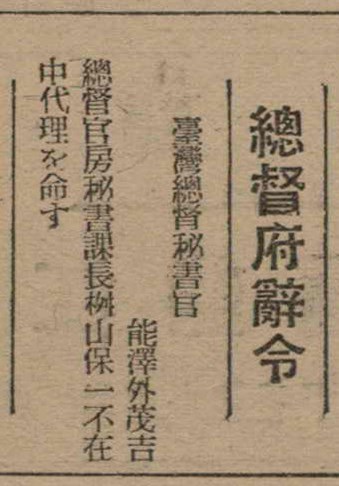 總督府辭令
臺灣總督秘書官
能澤外茂吉
總督官房秘書課長桝山保一不在
中代理を命す